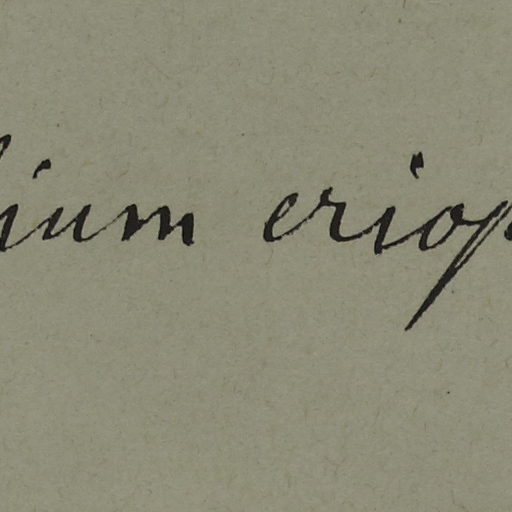 ium eriop